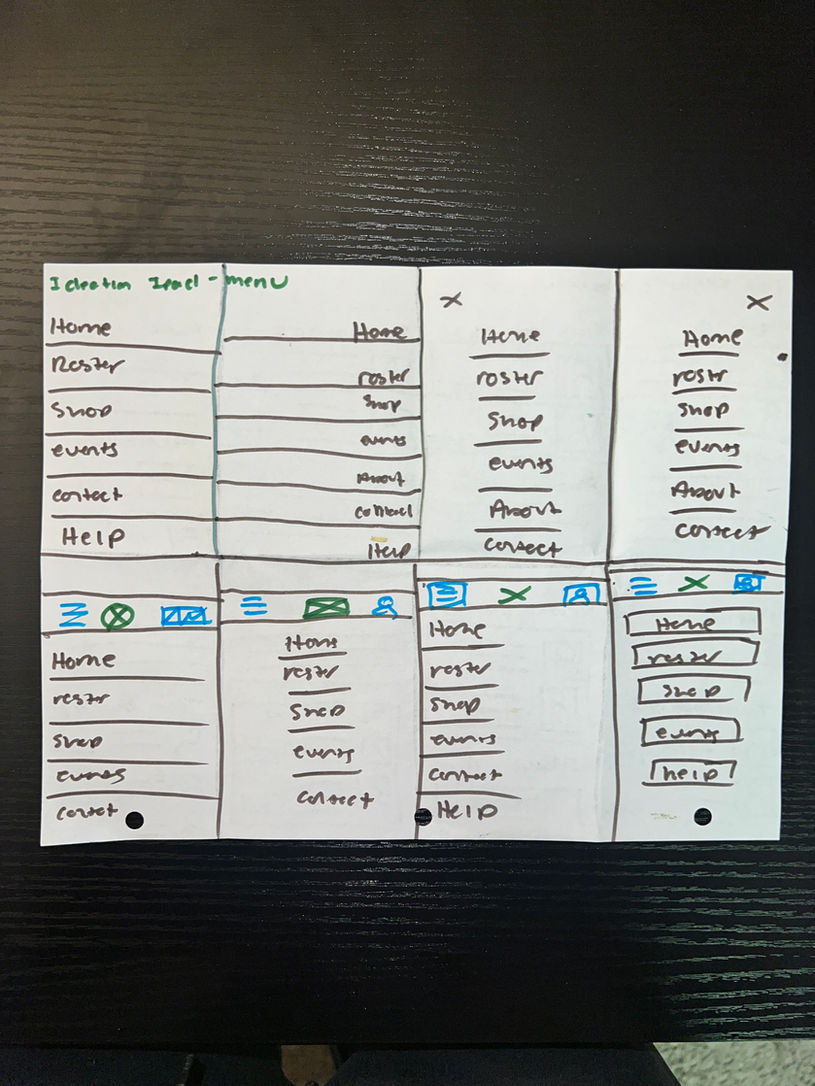 Ideation Israel - menu
Home
Roster
Shop
events
contact
Help
Home
roster
shop
events
About
contact
Help
Home
roster
Shop
events
About
contact
Home
roster
shop
events
About
contact
Home
roster
shop
events
contact
Home
roster
shop
events
contact
Home
roster
shop
events
contact
Help
Home
roster
shop
events
help